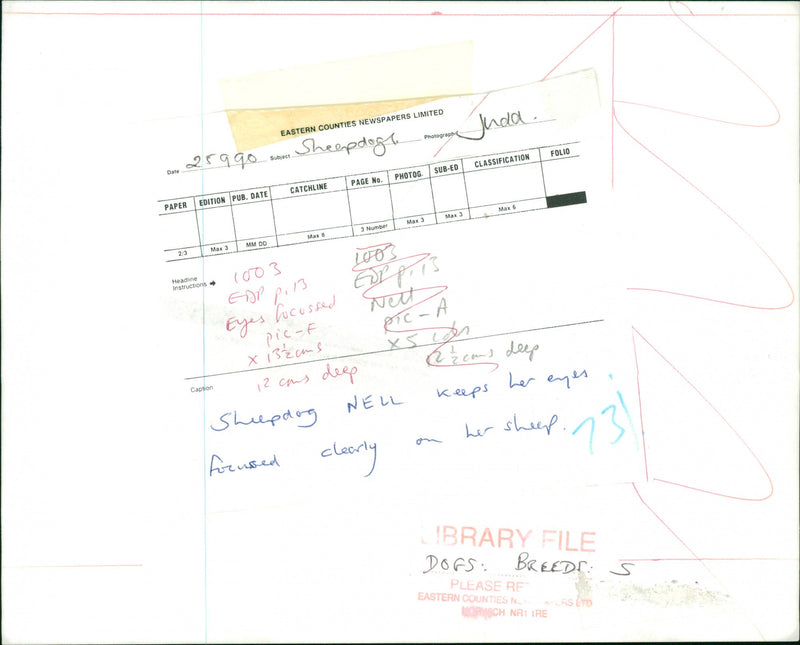 EASTERN COUNTIES NEWSPAPERS LIMITED
Date 25990 Subject Sheepdogs. Photographer Judd.
PAPER EDITION PUB. DATE CATCHLINE PAGE No. PHOTOG. SUB-ED CLASSIFICATION FOLIO
2/3 Max 3 MM DD Max 8 3 Number Max 3 Max 3 Max 6
Headline
Instructions
1003
EDP p.13
Eyes focussed
pic-F
x 13½ cms
12 cms deep
1003
EDP p.13
Nell
pic-A
x 5
2½ cms deep
Caption
Sheepdog NELL keeps her eyes
focused clearly on her sheep.
73
LIBRARY FILE
DOGS: BREEDS: S
PLEASE
EASTERN COUNTIES LTD
NORWICH NR1 1RE